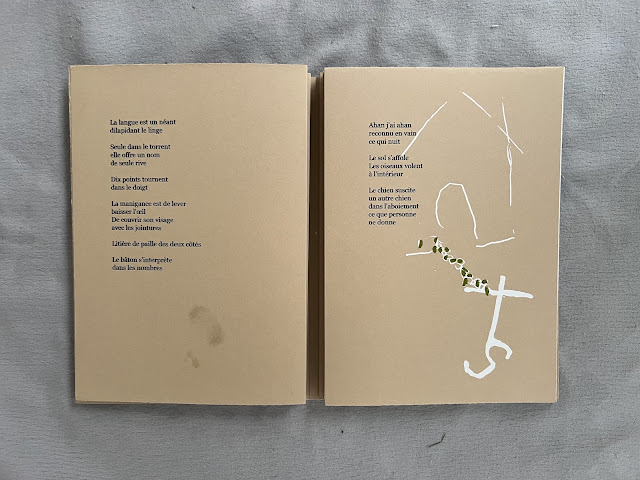 La langue est un néant
dilapidant le linge
Seule dans le torrent
elle offre un nom
de seule rive
Dix points tournent
dans le doigt
La manigance est de lever
baisser l'œil
De couvrir son visage
avec les jointures
Litière de paille des deux côtés
Le bâton s'interprète
dans les nombres
Ahan j'ai ahan
reconnu en vain
ce qui nuit
Le sol s'affole
Les oiseaux volent
à l'intérieur
Le chien suscite
un autre chien
dans l'aboiement
ce que personne
ne donne